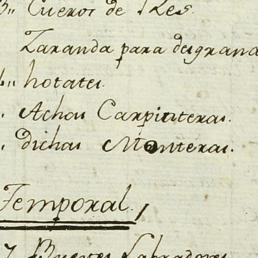 Cueros de Res
Zaranda para desgrana
hotates
Achas Carpinteras.
dichas Monteras.
Temporal
7 Bueyes Labradores